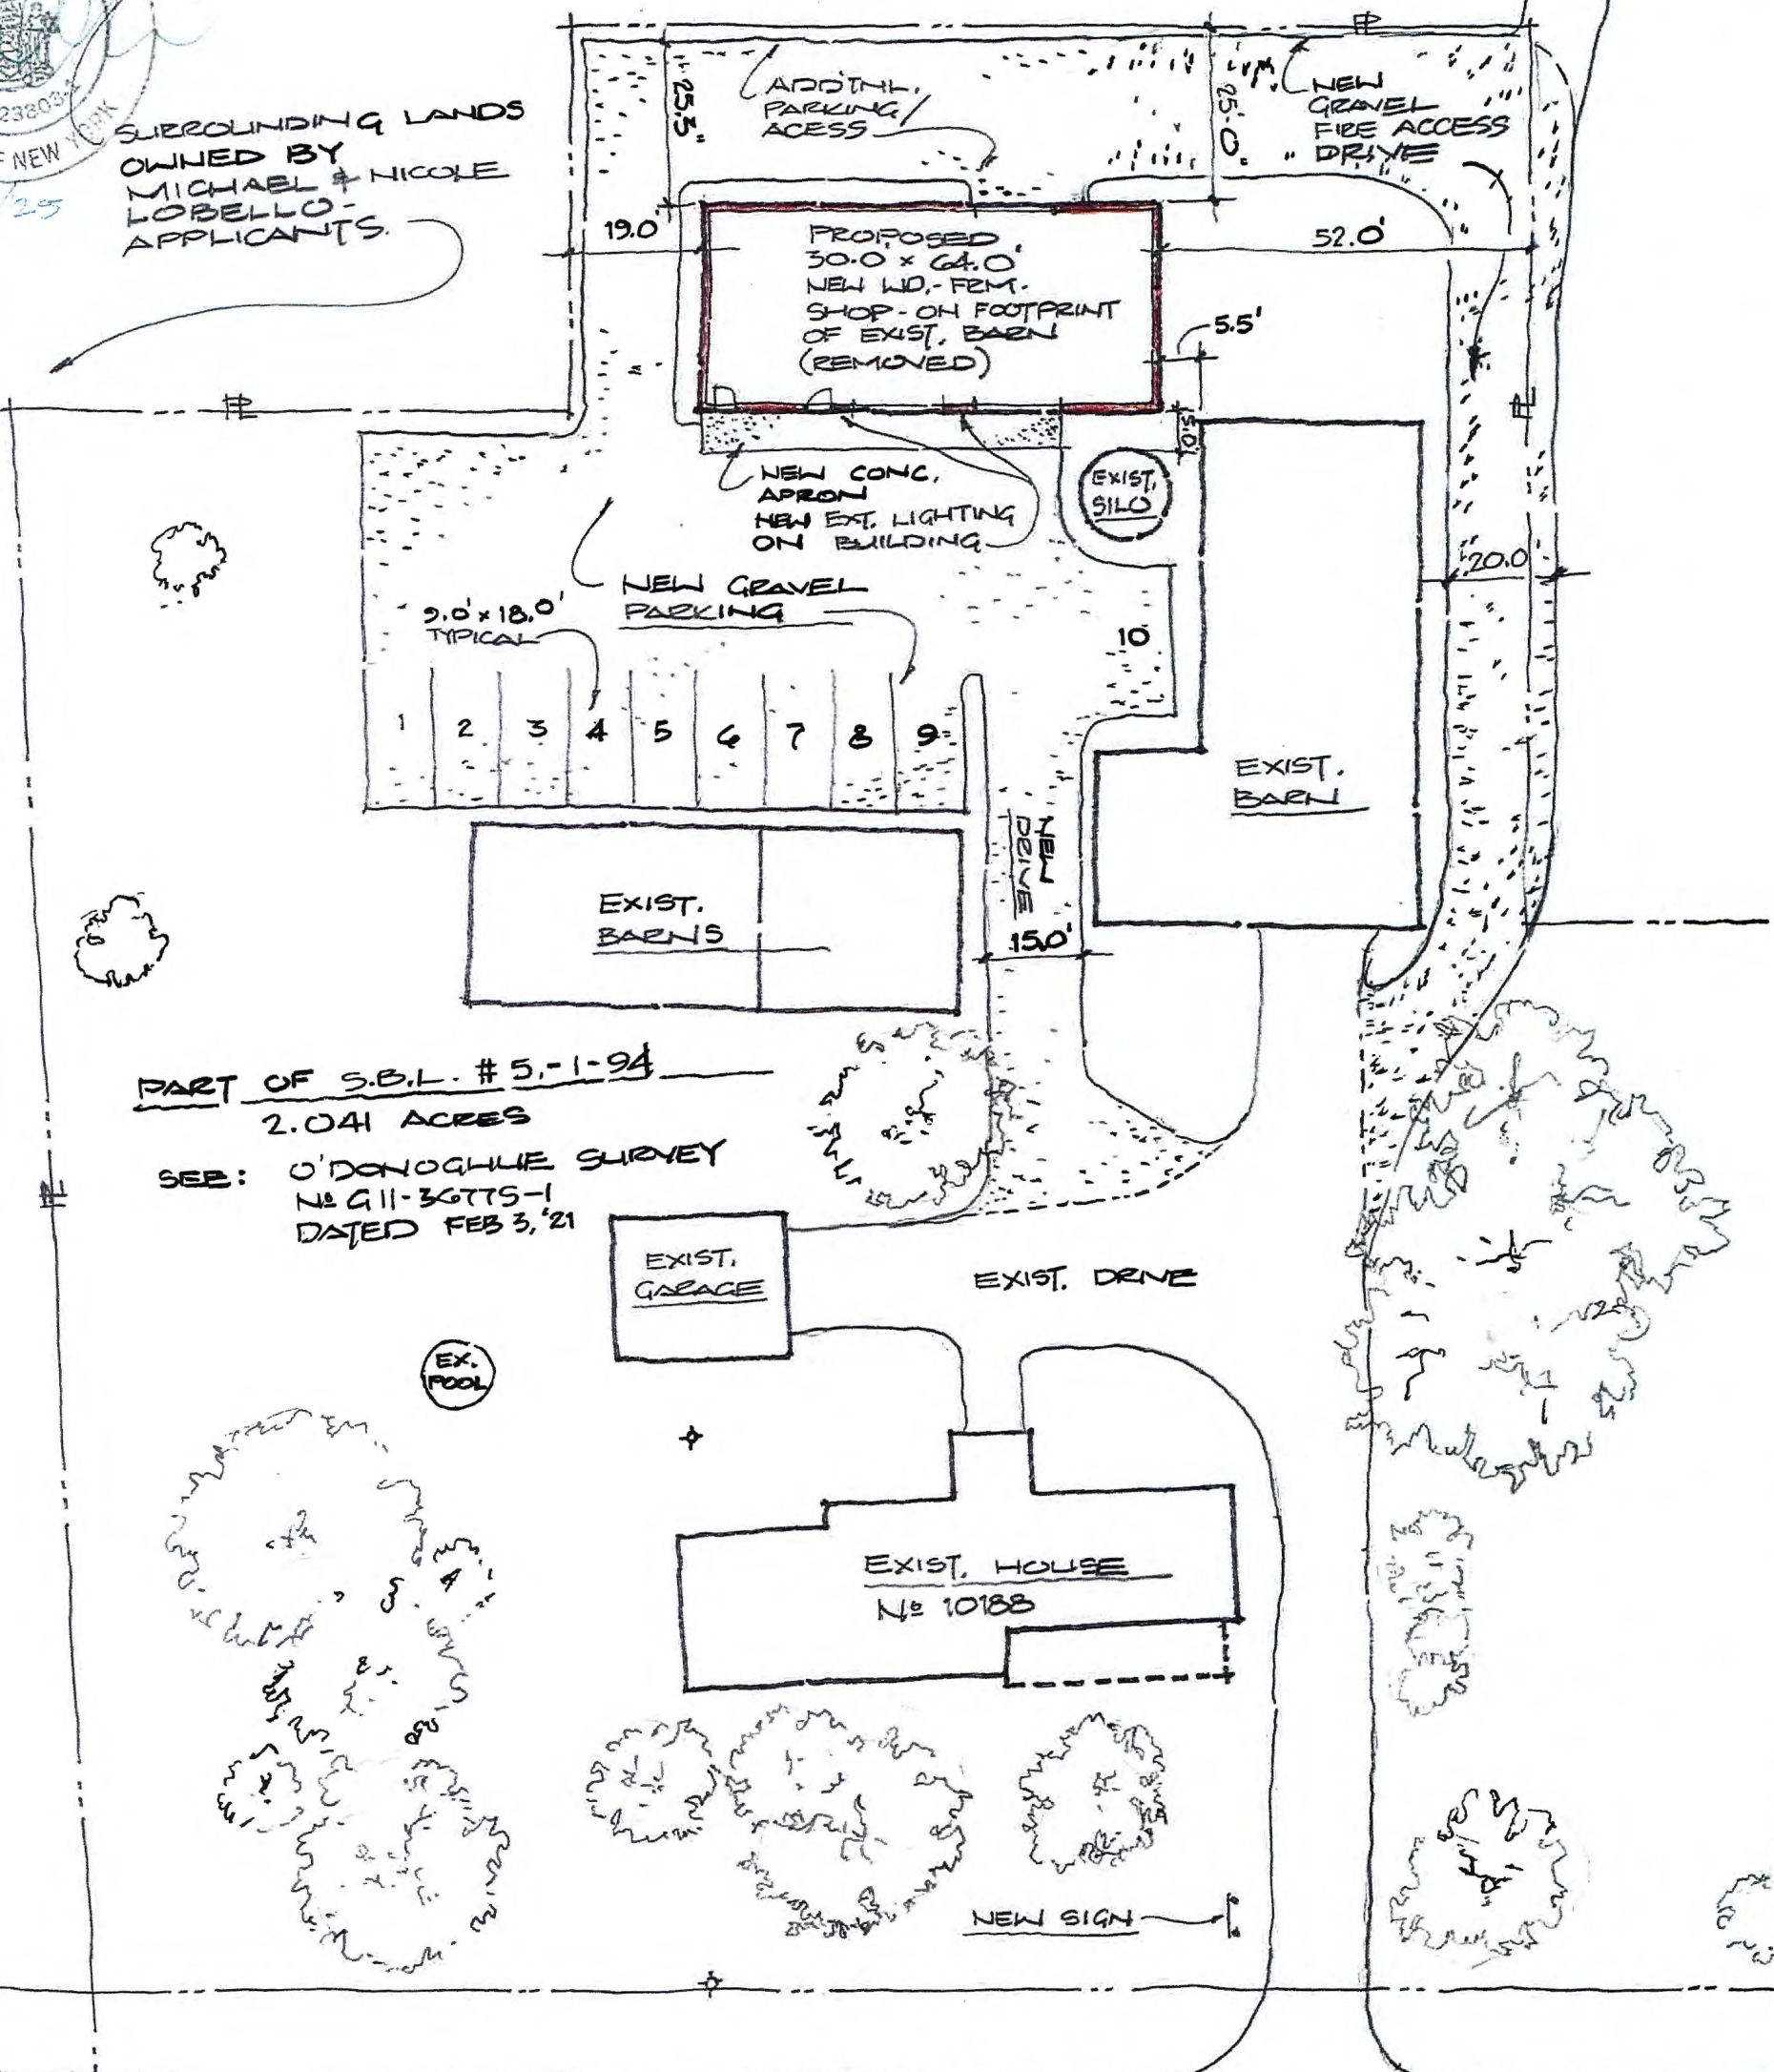 22380
F NEW YORK
25
SURROUNDING LANDS
OWNED BY
MICHAEL & NICOLE
LOBELLO-
APPLICANTS.
25.5"
ADDTNL.
PARKING/
ACESS
25'-0"
NEW
GRAVEL
FIRE ACCESS
DRIVE
19.0'
PROPOSED
30.0 x 64.0'
NEW WD.-FRM.
SHOP-ON FOOTPRINT
OF EXIST. BARN
(REMOVED)
52.0'
5.5'
5.0'
NEW CONC.
APRON
NEW EXT. LIGHTING
ON BUILDING
EXIST.
SILO
20.0
NEW GRAVEL
PARKING
9.0' x 18.0'
TYPICAL
10
1 2 3 4 5 6 7 8 9
EXIST.
BARN
NEW
DRIVE
EXIST.
BARNS
15.0'
PART OF S.B.L. # 5.-1-94
2.041 ACRES
SEE: O'DONOGHUE SURVEY
No G11-36775-1
DATED FEB 3, '21
EXIST.
GARAGE
EXIST. DRIVE
EX.
POOL
EXIST. HOUSE
No 10188
NEW SIGN